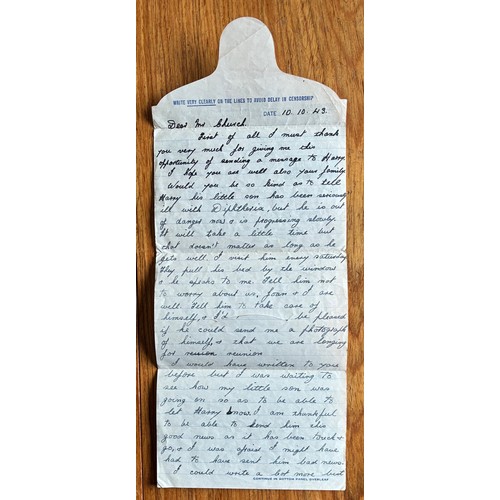 WRITE VERY CLEARLY ON THE LINES TO AVOID DELAY IN CENSORSHIP
DATE 10.10.43.
Dear Mr Church
First of all I must thank
you very much for giving me this
opportunity of sending a message to Harry.
I hope you are well also your family.
Would you be so kind as to tell
Harry his little son has been seriously
ill with Diphtheria, but he is out
of danger now & is progressing slowly.
It will take a little time but
that doesn't matter as long as he
gets well. I visit him every saturday
they pull his bed by the window
& he speaks to me. Tell him not
to worry about us, Joan & I are
well. Tell him to take care of
himself, & I'd be pleased
if he could send me a photograph
of himself, & that we are longing
for reunion
I would have written to you
before but I was waiting to
see how my little son was
going on so as to be able to
let Harry know. I am thankful
to be able to send him this
good news as it has been touch &
go, & I was afraid I might have
had to have sent him bad news.
I could write a lot more but
CONTINUE IN BOTTOM PANEL OVERLEAF